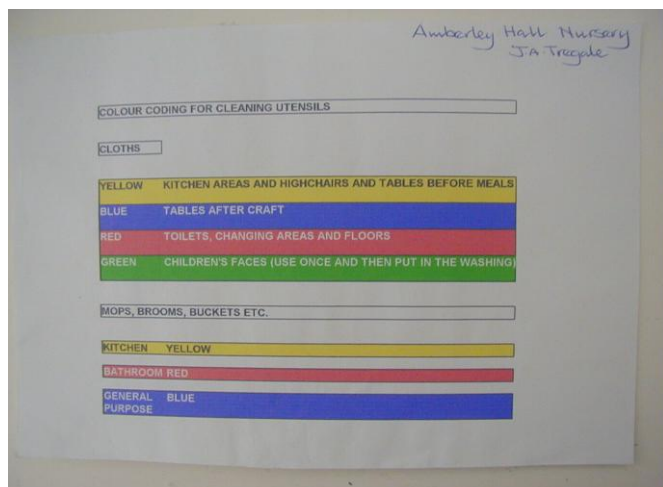 Amberley Hall Nursery
J.A. Tregale
COLOUR CODING FOR CLEANING UTENSILS
CLOTHS
YELLOW KITCHEN AREAS AND HIGHCHAIRS AND TABLES BEFORE MEALS
BLUE TABLES AFTER CRAFT
RED TOILETS, CHANGING AREAS AND FLOORS
GREEN CHILDREN'S FACES (USE ONCE AND THEN PUT IN THE WASHING)
MOPS, BROOMS, BUCKETS ETC.
KITCHEN YELLOW
BATHROOM RED
GENERAL BLUE
PURPOSE